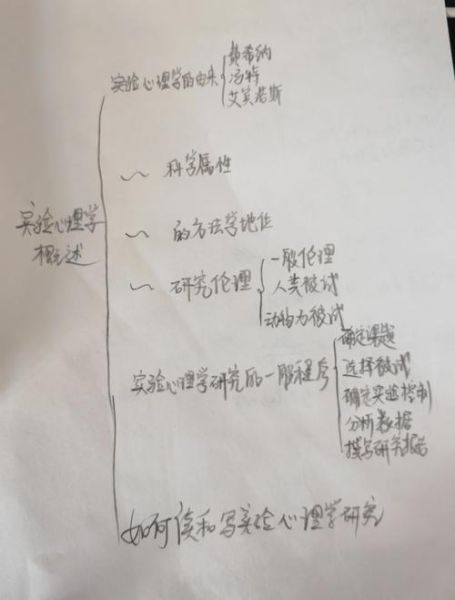 实验心理学的由来
费希纳
冯特
艾宾浩斯
~ 科学属性
实验心理学
概述
~ 的方法学地位
~ 研究伦理
一般伦理
人类被试
动物为被试
实验心理学研究的一般程序
确定课题
选择被试
确定实验控制
分析数据
撰写研究报告
如何读和写实验心理学研究